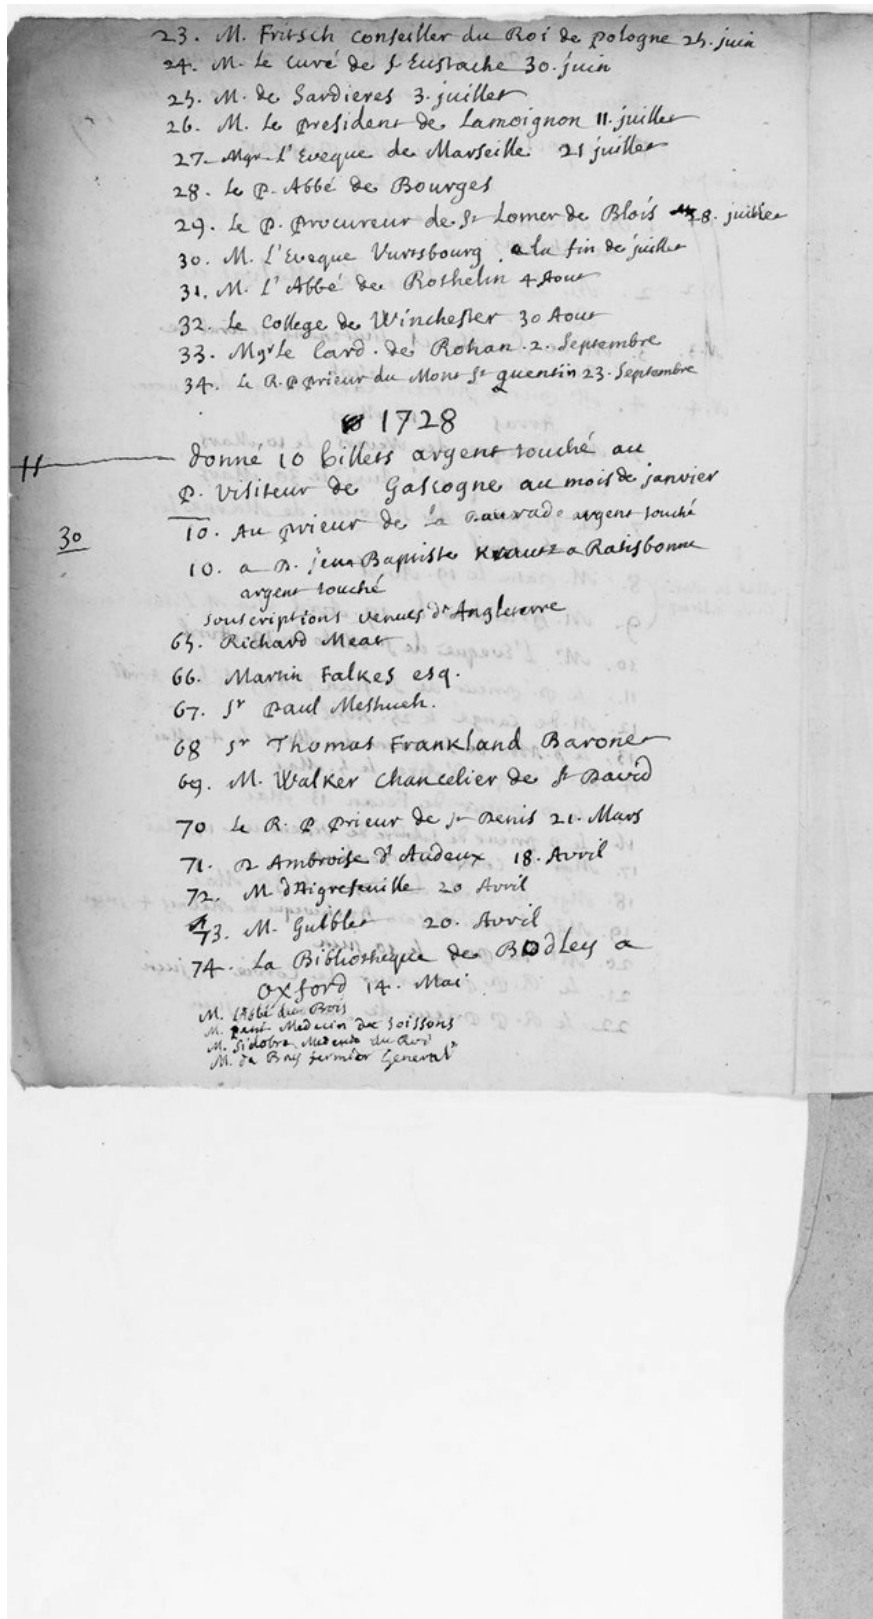 23. M. Fritsch conseiller du Roi de pologne 25. juin
24. M. Le Curé de St Eustache 30. juin
25. M. de Sardieres 3. juillet
26. M. Le president de Lamoignon 11. juillet
27. Mgr L'Eveque de Marseille 21 juillet
28. Le P. Abbé de Bourges
29. Le P. procureur de St Lomer de Blois 28. juillet
30. M. L'Eveque Vurtsbourg a la fin de juillet
31. M. L'Abbé de Rothelin 4 Aout
32. Le College de Winchester 30 Aout
33. Mgr Le Card. de Rohan. 2. Septembre
34. Le R. P prieur du Mont St quentin 23. Septembre
1728
11 donné 10 billets argent touché au
P. Visiteur de Gascogne au mois de janvier
30 10. Au prieur de La Daurade argent touché
10. a D. jean Baptiste a Ratisbonne
argent touché
souscriptions venues d'Angleterre
65. Richard Meat
66. Martin Falkes esq.
67. Sr Paul Methueh.
68 Sr Thomas Frankland Baronet
69. M. Walker Chancelier de St David
70 Le R. P prieur de St Denis 21. Mars
71. D Ambroise d'Audeux 18. Avril
72. M. d'Aigrefeuille 20 Avril
73. M. Gulblet 20. Avril
74. La Bibliotheque de Bodley a
Oxford 14. Mai
M. L'Abbé du Bois
M. petit Medecin de Soissons
M. Sidobre Medecin du Roi
M. de Bray fermier General